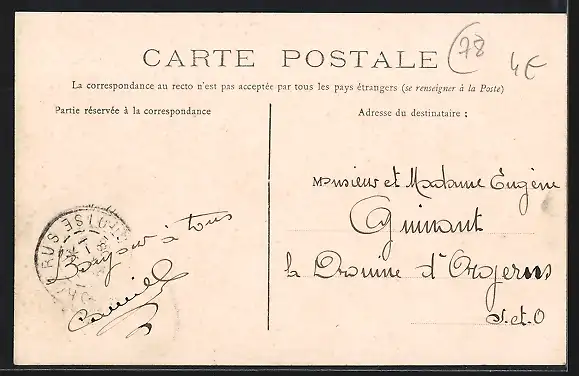 CARTE POSTALE
78
4€
La correspondance au recto n'est pas acceptée par tous les pays étrangers (se renseigner à la Poste)
Partie réservée à la correspondance
Adresse du destinataire :
Monsieur et Madame Eugène
Guinant
la Dromine d'Orgerus
S.et.O
ORGERUS
Bonjour à tous
Camille